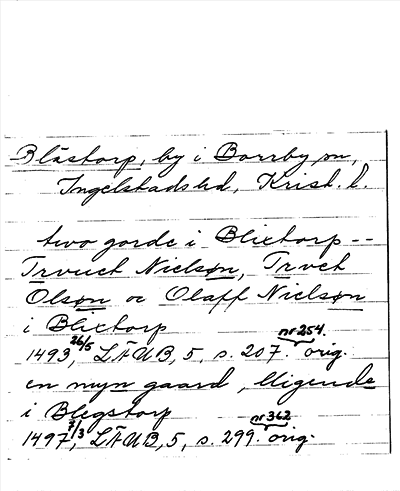 Blästorp, by i Borrby sn,
Ingelstads hd, Krist. l.
two gorde i Blietorp --
Trvuet Nielsøn, Trvet
Olsøn oc Olaff Nielsøn
i Blietorp
1493 26/5, LÄUB, 5, s. 207. nr 254. orig.
en myn gaard, lligende
i Blegstorp
1497 7/3, LÄUB, 5, s. 299. nr 362 orig.